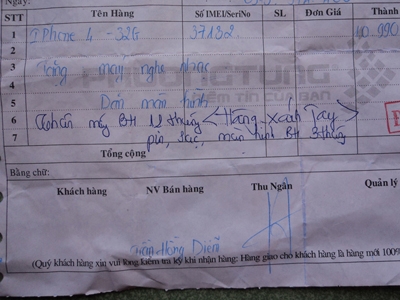 Ngày:
STT Tên Hàng Số IMEI/SeriNo SL Đơn Giá Thành
1 IPhone 4 - 32G 37132 10.990
2
3 Tặng máy nghe nhạc
4
5 Dán màn hình
6 BH 12 tháng <Hàng xách Tay>
7 pin, sạc, màn hình BH 3 tháng
Tổng cộng
Bằng chữ:
Khách hàng NV Bán hàng Thu Ngân Quản lý
Trần Hồng Diễm
(Quý khách hàng xin vui lòng kiểm tra kỹ khi nhận hàng: Hàng giao cho khách hàng là hàng mới 100%